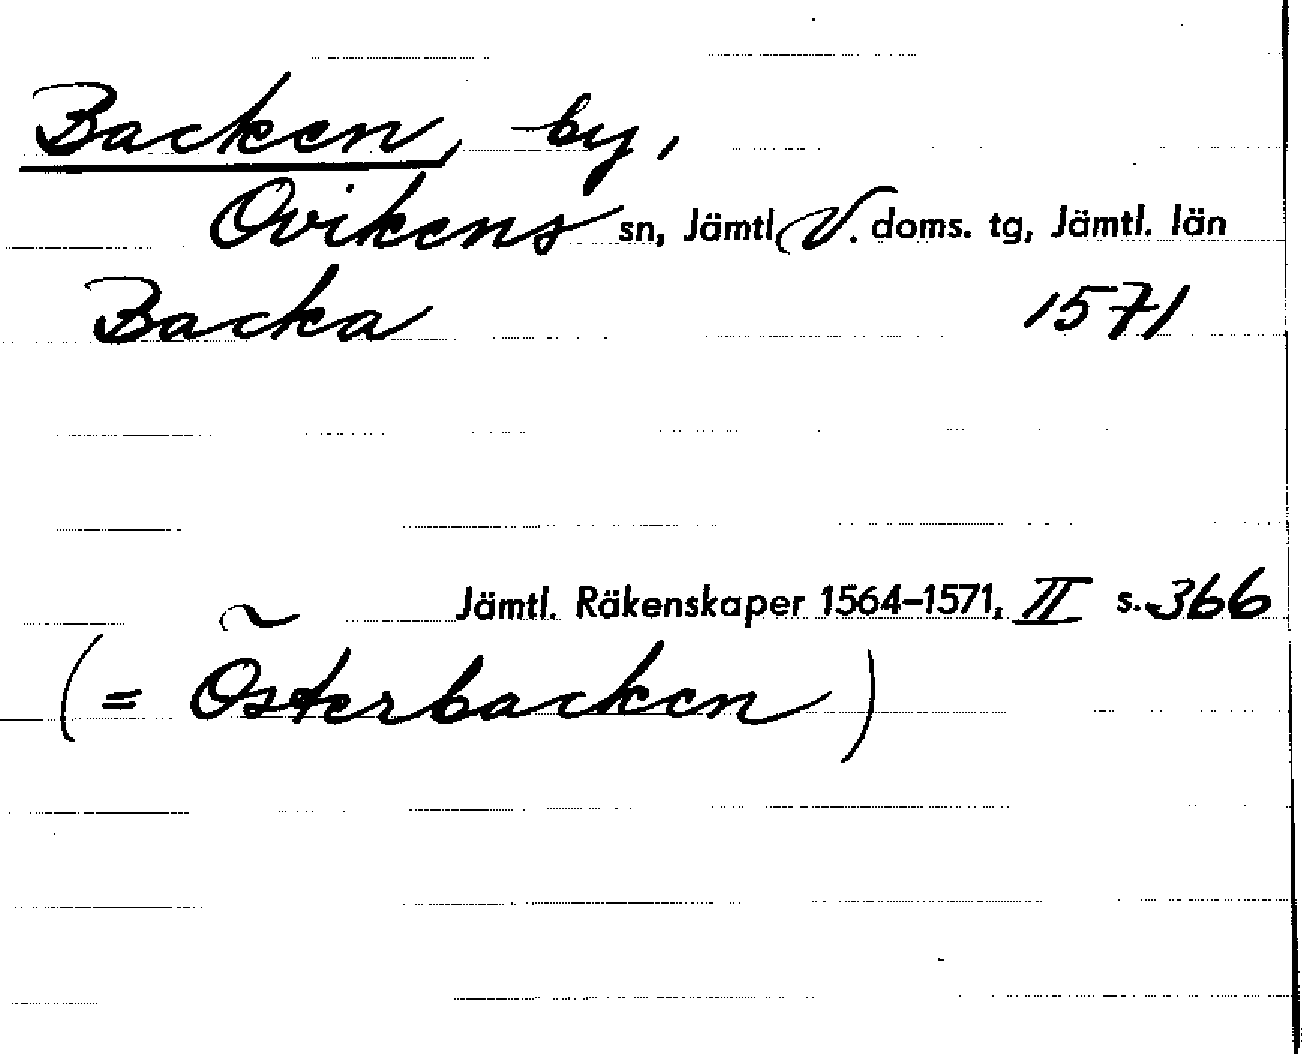 Backen, by,
Ovikens sn, Jämtl. V. doms. tg, Jämtl. län
Backa 1571
Jämtl. Räkenskaper 1564–1571, II s. 366
(= Österbacken)